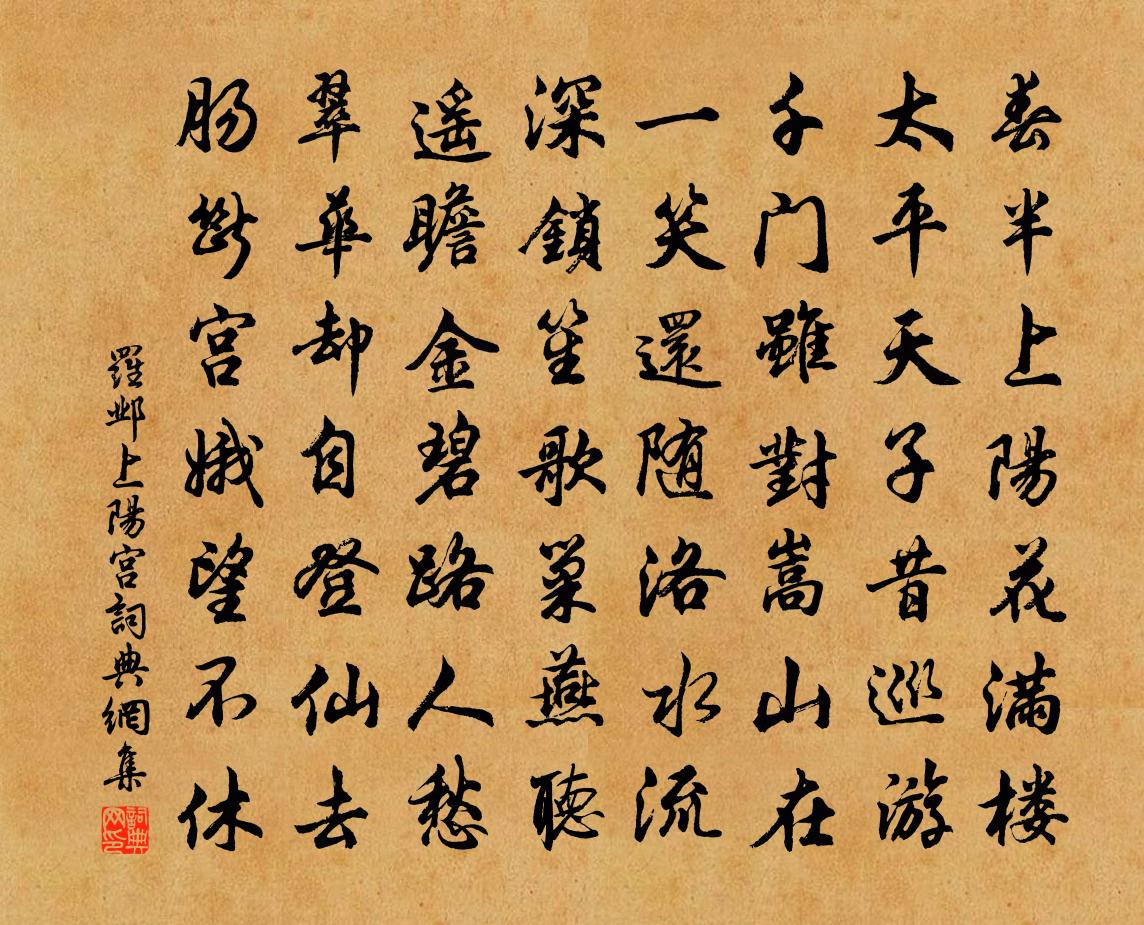 春半上陽花满楼
太平天子昔巡游
千门雖對嵩山在
一笑還随洛水流
深鎖笙歌巢燕聽
遥瞻金碧路人愁
翠華却自登仙去
肠斷宫娥望不休
羅邺上陽宫詞典網集
詞典网印